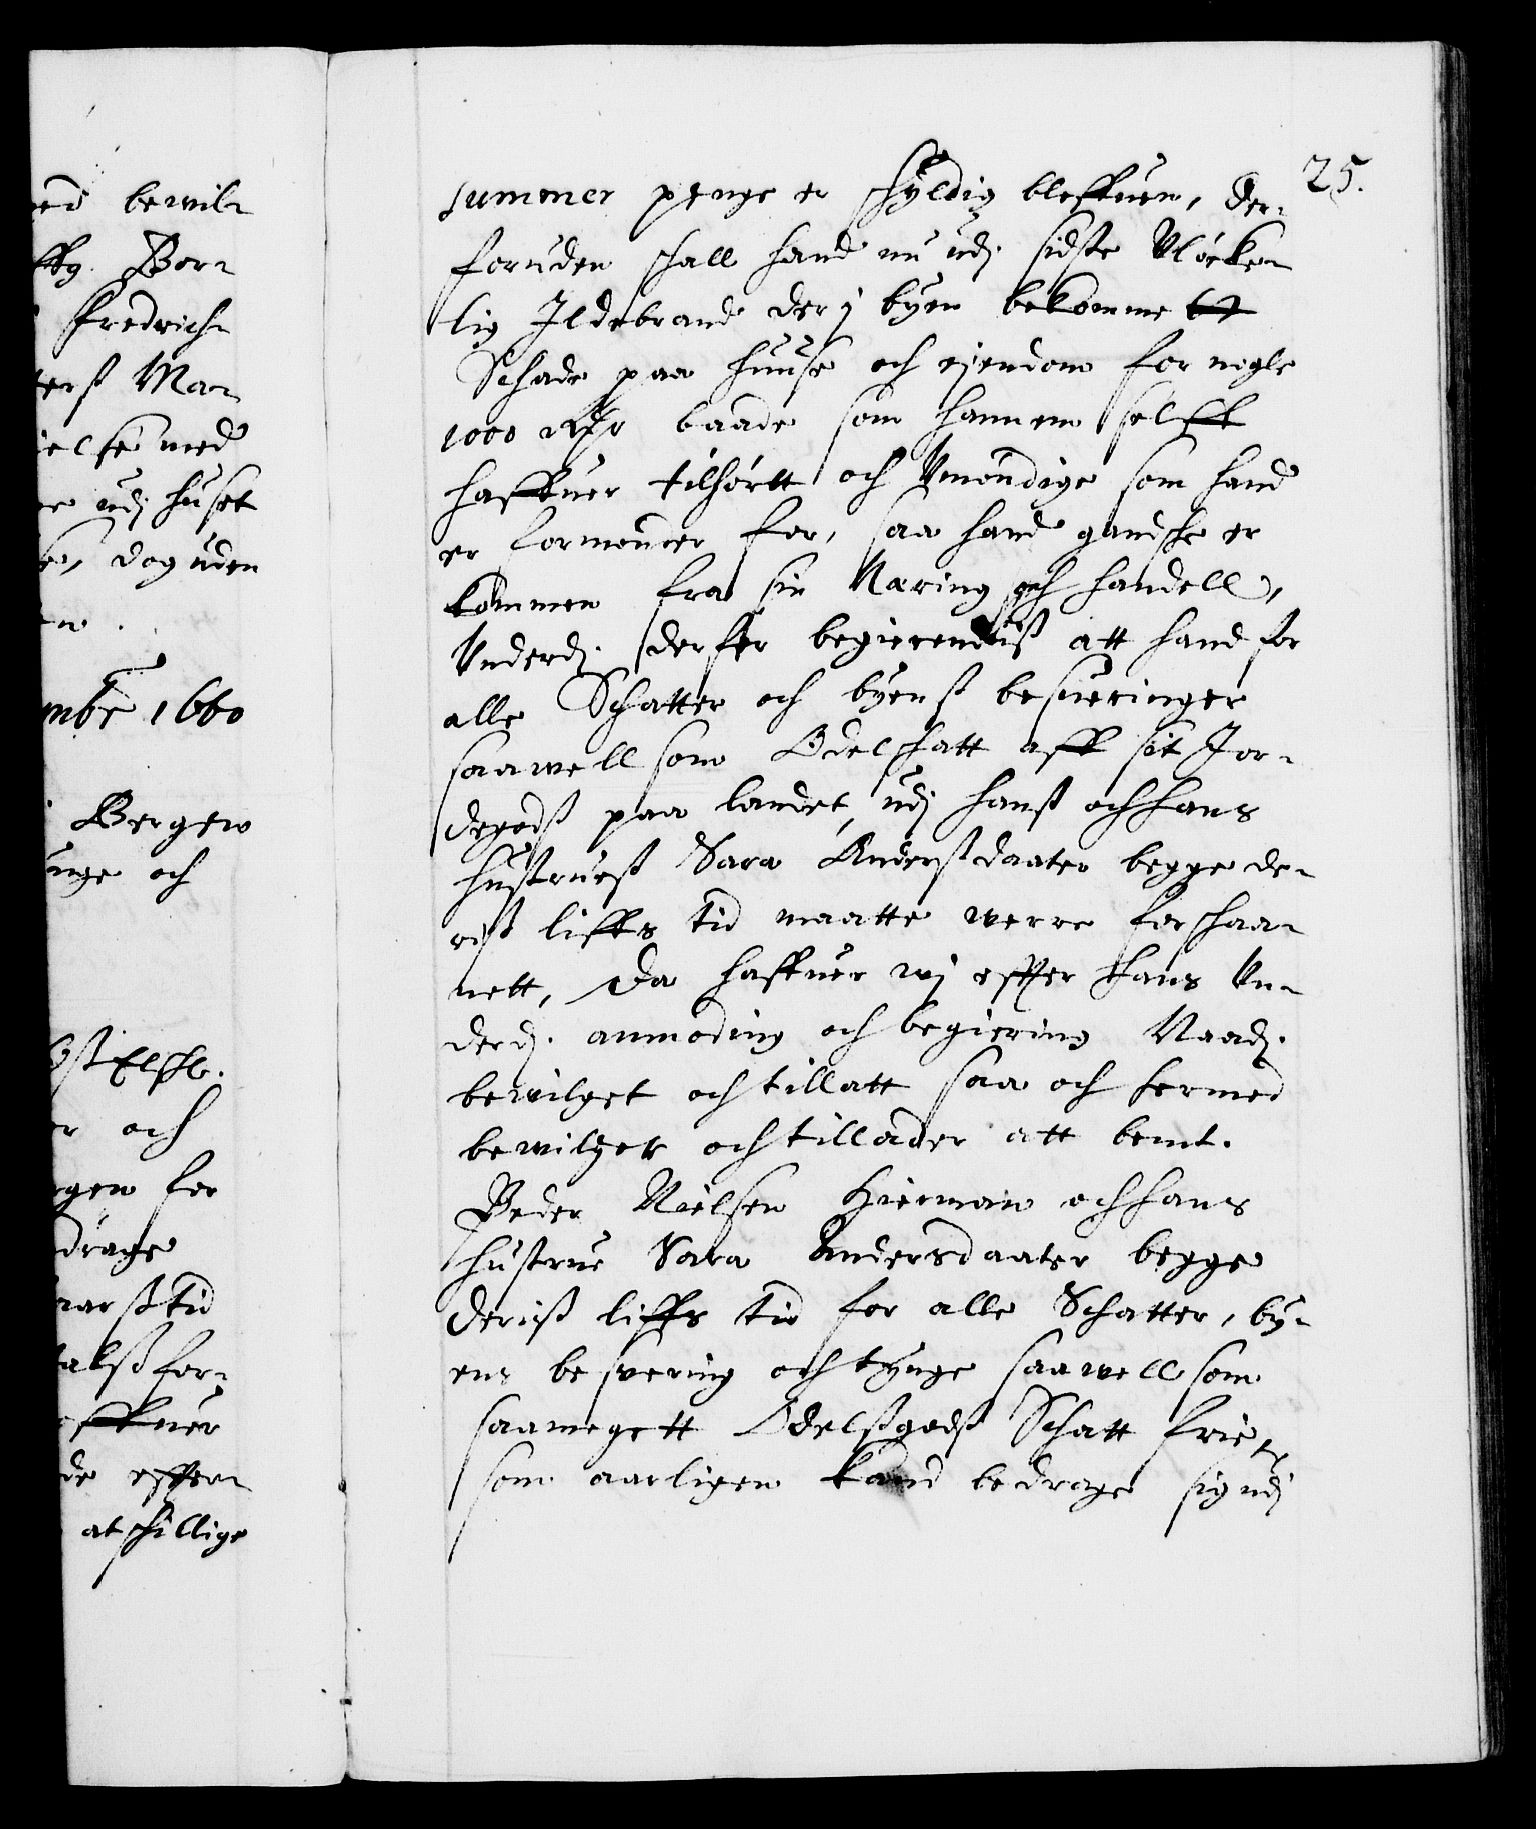 ed bewil-
ffg. Bor-
Fredrich
erß Ma-
else med
e udj huset
e, dog uden
n.
mbr 1660
Bergen
unge och
Ost Elſſe.
r och
gen for
drage
arß tid
alß for-
affuer
de effter-
atskillige
25.
summer penge er schÿldig bleffuen, der-
foruden schall hand nu udj sidste Uløcke-
lig Ildebrand der j byen bekomme et
Schade paa huuse och eÿendom for nogle
1000 Rdr baade som hannem selff
haffuer tilhørtt och Umÿndige som hand
er formÿnder for, saa hand gandsche er
kommen fra sin Næring och handell,
Underd. derfor begierendiß att hand for
alle Schatter och byenß besueringer
saawell som Odelschatt aff sit Jor-
degodß paa landet, udj hanß och hans
hustrueß Sara Anderßdaater begge de-
riß liffs tid maatte werre forschaa-
nett, Da haffuer wj effter hans Un-
derd. anmoding och begiering Naad.
bewilget och tilladt saa och hermed
bewilger och tillader att bemt.
Peder Nielsen Hierman och hans
hustrue Sara Andersdaater begge
deriß liffs tid for alle Schatter, by-
ens besvering och tÿnge saawell som
saamegett Odelßgodß Schatt frie
som aarligen kand bedrage sig udj